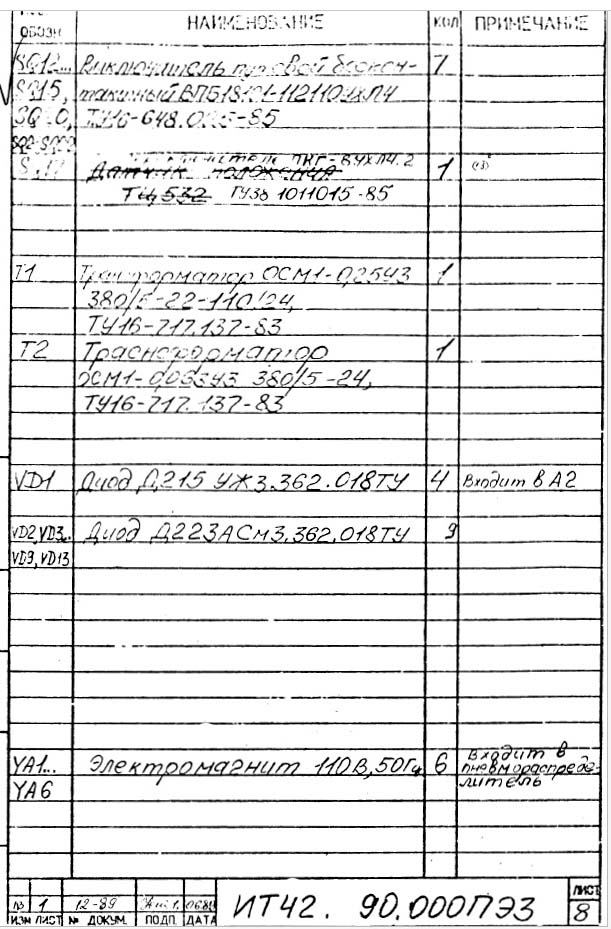 ОБОЗН. НАИМЕНОВАНИЕ КОЛ ПРИМЕЧАНИЕ
SQ12... Выключатель путевой бескон- 7
SQ15, тактный ВПБ18
ТУ16-648. -85
ПКГ-8УХЛ4.2
Датчик положения 1
ТЦ532 ТУ38 1011015-85
Т1 Трансформатор ОСМ1-0,25У3 1
380/5-22-110/24,
ТУ16-717.137-83
Т2 Траснсформатор 1
ОСМ1- 380/5-24,
ТУ16-717.137-83
VD1 Диод Д215 УЖ3.362.018ТУ 4 Входит в А2
VD2,VD3.. Диод Д223А См3.362.018ТУ 9
VD9,VD13
YA1... Электромагнит 110В,50Гц 6 Входит в
YA6 пневмораспреде-
литель
1 12-89
ИЗМ ЛИСТ № ДОКУМ. ПОДП. ДАТА
ИТ42. 90.000ПЭ3
ЛИСТ
8